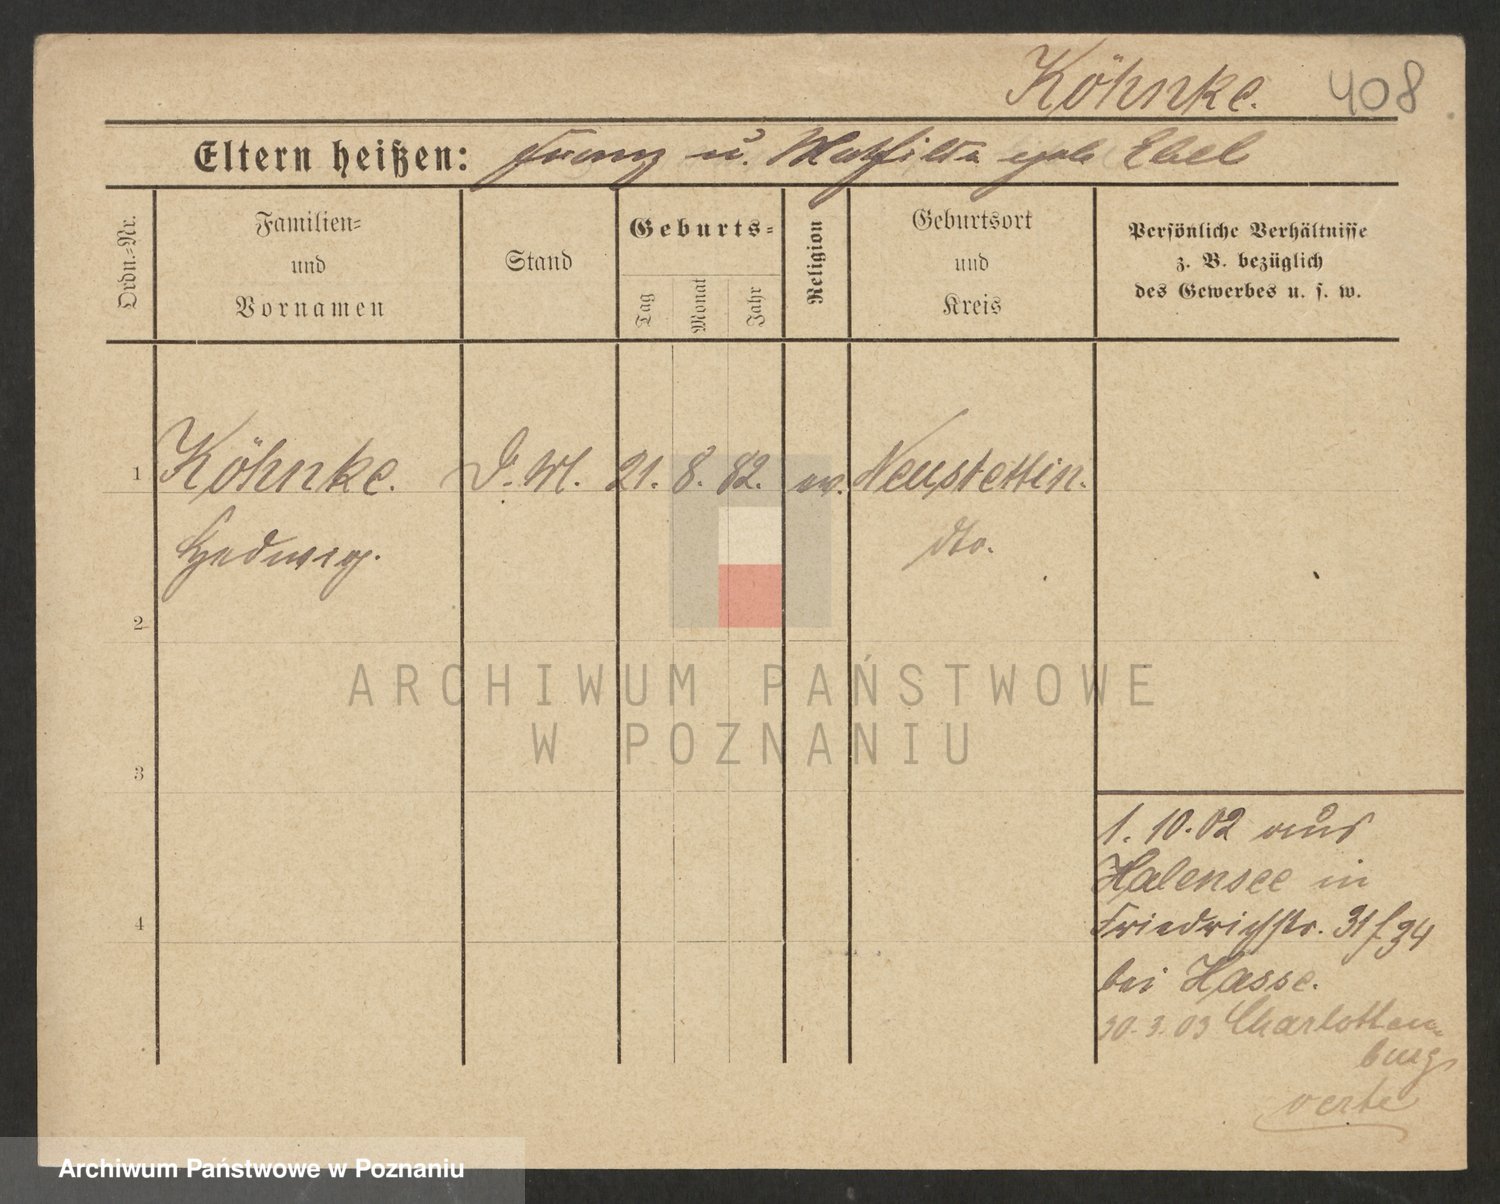 Köhnke. 408
Eltern heißen: Franz u. Mathilda geb. Ebel
Ordn.-Nr.
Familien-
und
Vornamen
Stand
Geburts-
Tag
Monat
Jahr
Religion
Geburtsort
und
Kreis
Persönliche Verhältnisse
z. B. bezüglich
des Gewerbes u. s. w.
1 Köhnke. D. M. 21. 8. 82. ev. Neustettin.
Hedwig. dto.
2
3
4
1. 10. 02 aus
Halensee in
Friedrichstr. 31
bei Hasse.
30. 3. 03 Charlotten-
burg
verte
ARCHIWUM PAŃSTWOWE
W POZNANIU
Archiwum Państwowe w Poznaniu